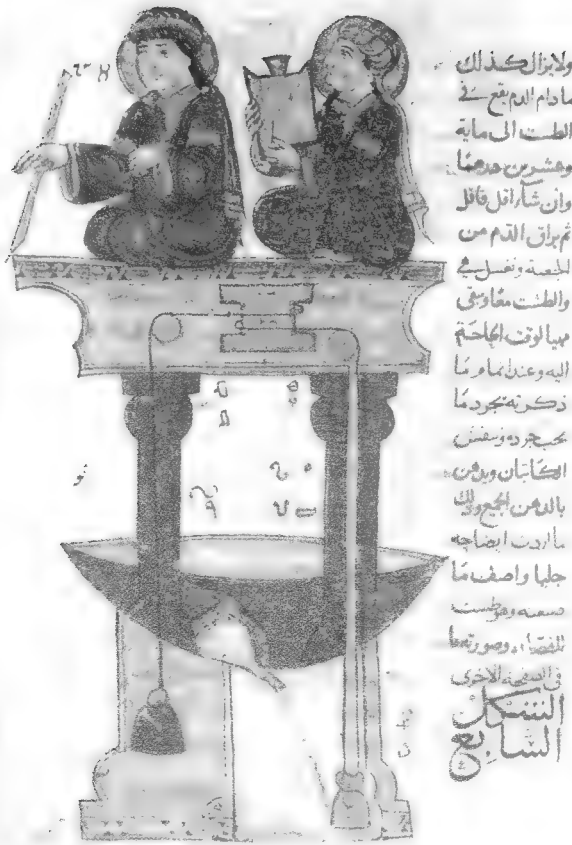 ولايزال كذلك
مادام الدم يقع في
الطست الى ماية
وعشرين درهما
وان شا اقل فاقل
ثم يراق الدم من
وتغسل هي
والطست معا وتبقى
مهيا لوقت الحاجة
اليه وعند تمام ما
ذكرته يجرد ما
يجب جرده وينقش
الكاتبان ويدهن
بالدهن الجميع وذلك
ما اردت ايضاحه
جليا واصف ما
صنعته وهو طست
للفصاد وصورتها
في الصفحة الاخرى
الشكل
السابع